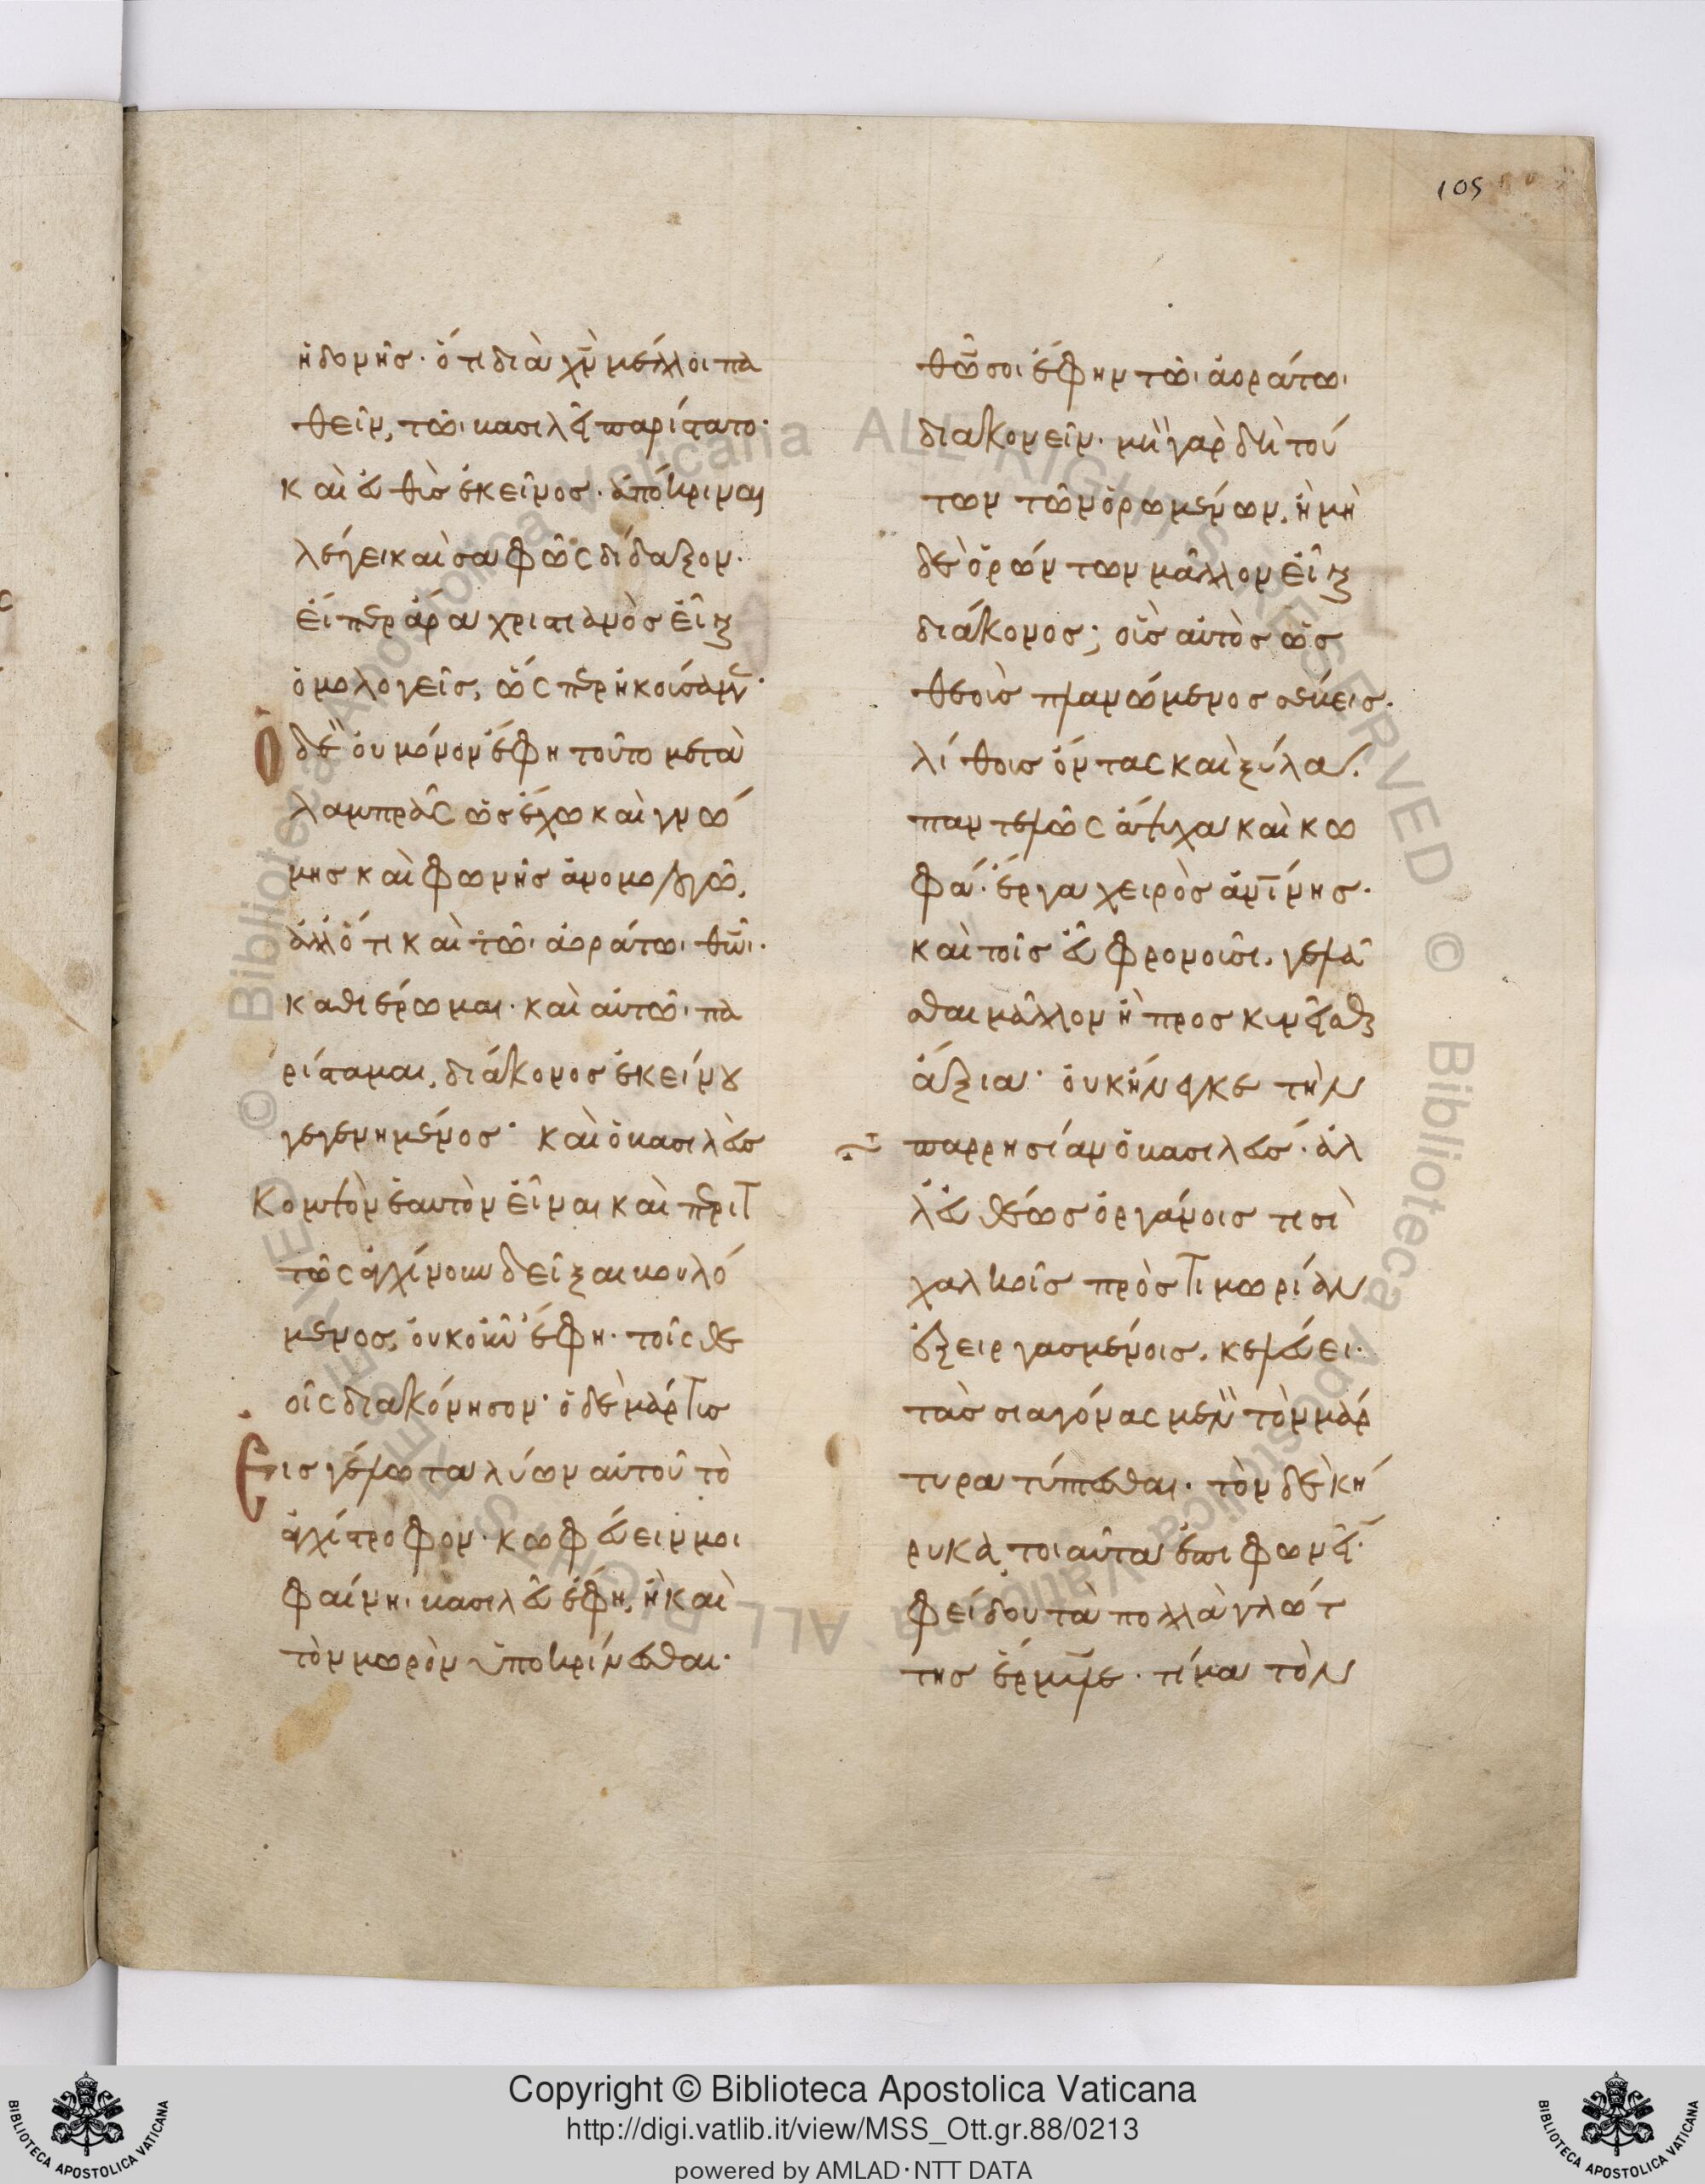 105
ἡδονῆς· ὅτι διὰ χν̄ μέλλοι πα
θεῖν, τῶι βασιλεῖ παρίστατο·
καὶ εὐθὺς ἐκεῖνος· ἀπόκριναι
λέγει καὶ σαφῶς δίδαξον·
εἴπερ ἄρα χριστιανὸς εἶναι
ὁμολογεῖς, ὥσπερ ἠκούσαμεν·
Ὁ δὲ οὐ μόνον ἔφη τοῦτο μετὰ
λαμπρᾶς ὡς ἔχω καὶ γνώ
μης καὶ φωνῆς ἀνομολογῶ,
ἀλλ ὅτι καὶ τῶι ἀοράτωι θω̄ι·
καθιέρωμαι· καὶ αὐτῶι πα
ρίσταμαι, διάκονος ἐκείνου
γεγενημένος· καὶ ὁ βασιλεὺς
κομψὸν ἑαυτὸν εἶναι καὶ περιτ
τῶς ἀγχίνουν δεῖξαι βουλό
μενος, οὐκοῦν ἔφη· τοῖς θε
οῖς διακόνησον· ὁ δὲ μάρτυς
Εἰς γέλωτα λύων αὐτοῦ τὸ
ἀγχίστροφον· κωφεύειν μοι
φαίνηι βασιλεῦ ἔφη, ἢ καὶ
τὸν μωρὸν ὑποκρίνεσθαι·
θω̄ σοι ἔφην τῶι ἀοράτωι
διακονεῖν· μὴ γὰρ δὴ τού
των τῶν ὁρωμένων, ἢ μὴ
δὲ ὁρώντων μᾶλλον εἶναι
διάκονος; οἷς αὐτὸς ὡς
θεοῖς πλανώμενος σέβεις·
λίθοις ὄντας καὶ ξύλα,
παντελῶς ἄψυχα καὶ κω
φά· ἔργα χειρὸς ἀν̄ίνης·
καὶ τοῖς εὖ φρονοῦσι, γελᾶ
σθαι μᾶλλον ἢ προσκυνεῖσθαι
ἄξια· οὐκ ἤνεγκε τὴν
παρρησίαν ὁ βασιλεύς· ἀλ
λ εὐθέως ὀργάνοις τισὶ
χαλκοῖς πρὸς τιμωρίαν
ἐξειργασμένοις, κελεύει·
τὰς σιαγόνας μὲν τὸν μάρ
τυρα τύπτεσθαι· τὸν δὲ κή
ρυκα τοιαῦτα ἐπιφωνεῖ·
φείδου τὰ πολλὰ γλώτ
της ἑρμύλε· τίμα τὸν
Copyright © Biblioteca Apostolica Vaticana
http://digi.vatlib.it/view/MSS_Ott.gr.88/0213
powered by AMLAD·NTT DATA